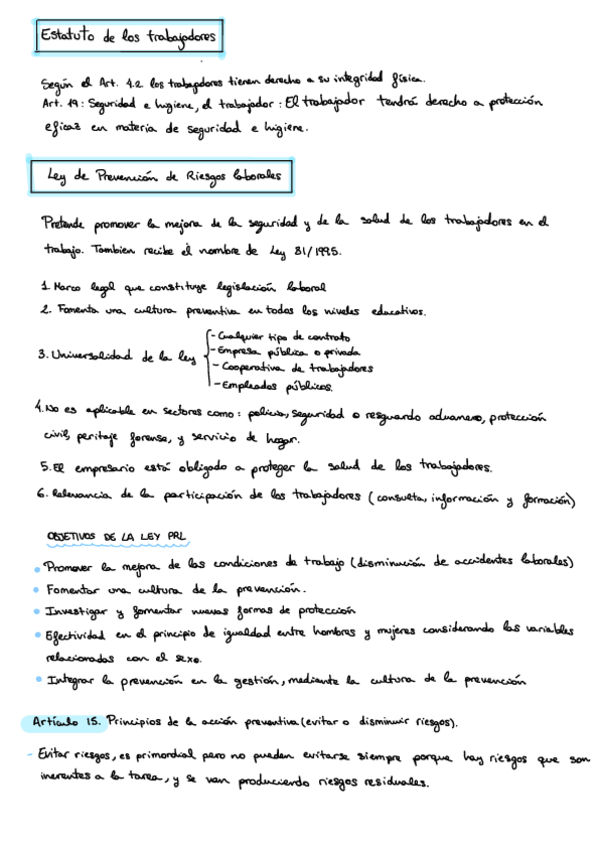 Estatuto de los trabajadores
Según el Art. 4.2 los trabajadores tienen derecho a su integridad física.
Art. 19: Seguridad e higiene, el trabajador: El trabajador tendrá derecho a protección
eficaz en materia de seguridad e higiene.
Ley de Prevención de Riesgos laborales
Pretende promover la mejora de la seguridad y de la salud de los trabajadores en el
trabajo. Tambien recibe el nombre de Ley 31/1995.
1. Marco legal que constituye legislación laboral
2. Fomenta una cultura preventiva en todos los niveles educativos.
3. Universalidad de la ley
- Cualquier tipo de contrato
- Empresa pública o privada
- Cooperativa de trabajadores
- Empleados públicos.
4. No es aplicable en sectores como: policía, seguridad o resguardo aduanero, protección
civil, peritaje forense, y servicio de hogar.
5. El empresario está obligado a proteger la salud de los trabajadores.
6. Relevancia de la participación de los trabajadores (consulta, información y formación)
OBJETIVOS DE LA LEY PRL
• Promover la mejora de las condiciones de trabajo (disminución de accidentes laborales)
• Fomentar una cultura de la prevención.
• Investigar y fomentar nuevas formas de protección
• Efectividad en el principio de igualdad entre hombres y mujeres considerando las variables
relacionadas con el sexo.
• Integrar la prevención en la gestión, mediante la cultura de la prevención
Artículo 15. Principios de la acción preventiva (evitar o disminuir riesgos).
- Evitar riesgos, es primordial pero no pueden evitarse siempre porque hay riesgos que son
inerentes a la tarea, y se van produciendo riesgos residuales.